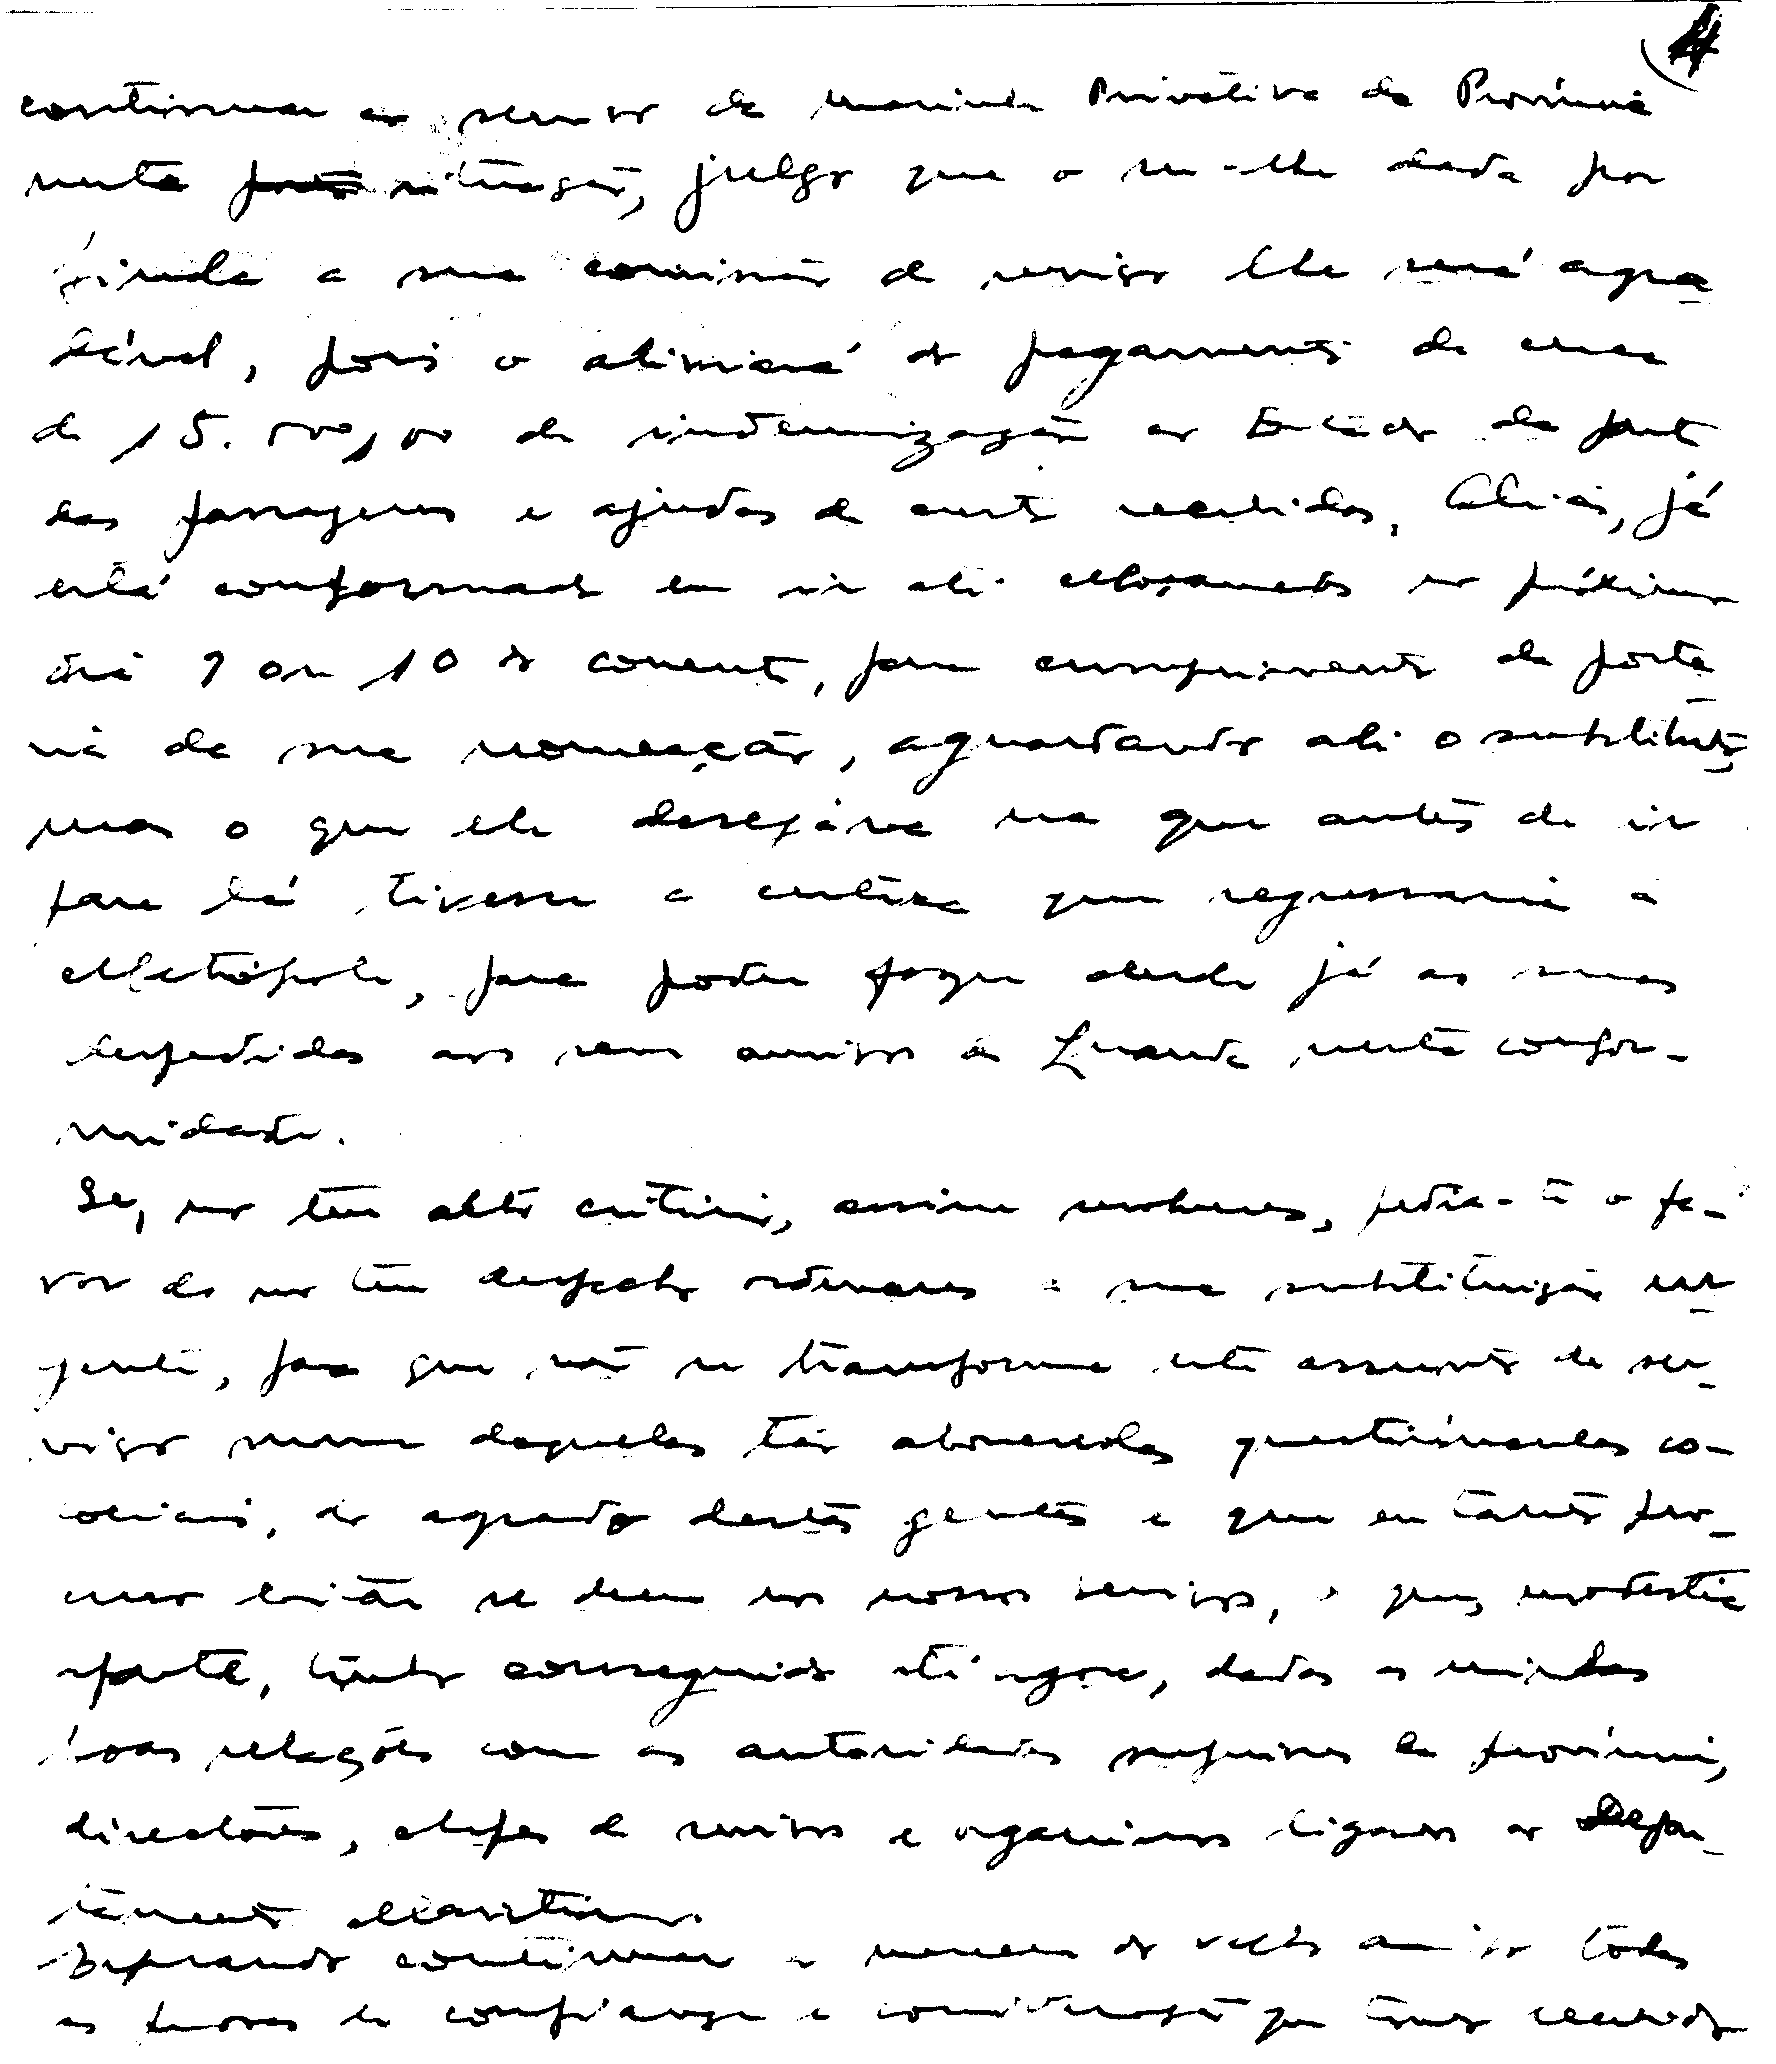 4
continuar ao serviço da marinha Privativa da Província
nesta situação, julgo que o ser-lhe dada por
finda a sua comissão de serviço lhe será agra-
dável, pois o aliviará do pagamento de cerca
de 15.000,00 de indemnização ao Estado da parte
das passagens e ajudas de custo recebidas. Aliás, já
está conformado em ir ali alojamento no próximo
dia 9 ou 10 do corrente, para cumprimento da porta-
ria da sua nomeação, aguardando ali o substituto,
mas o que ele desejava era que antes de ir
para lá tivesse a certeza que regressaria à
Metrópole, para poder fazer desde já as suas
despedidas aos seus amigos de Luanda nesta confor-
midade.
Se, no teu alto critério, assim resolveres, pedia-te o fa-
vor de no teu despacho ordenares a sua substituição ur-
gente, para que não se transforme este assunto de ser-
viço numa daquelas tão aborrecidas questiúnculas co-
loniais, do agrado destas gentes e que eu tanto pro-
curo evitar se deem nos nossos serviços, o que, modéstia
aparte, tenho conseguido até agora, dadas as minhas
boas relações com as autoridades superiores da província,
directores, chefes de serviços e organismos ligados ao Depar-
tamento Marítimo.
Esperando continuar a merecer do velho amigo todas
as provas de confiança e consideração que tenho recebido